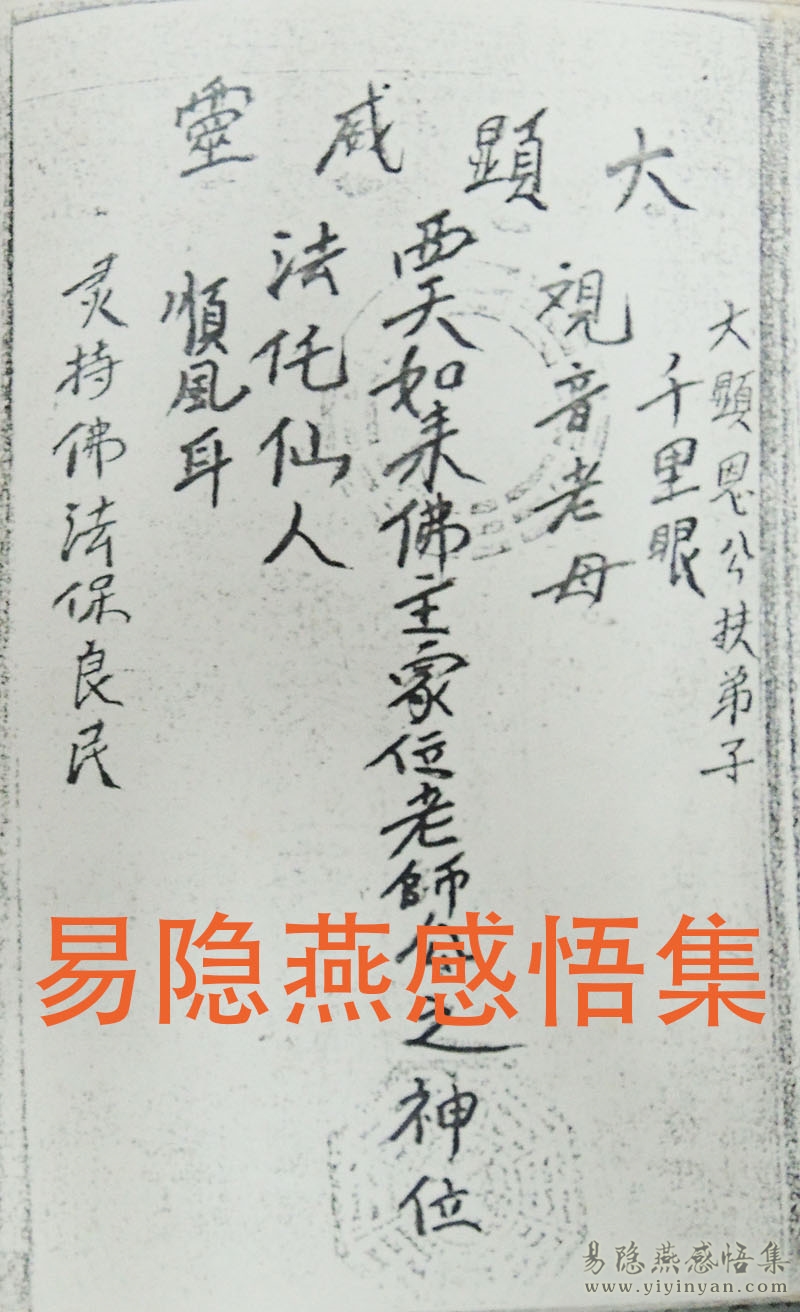 大顯威靈
大顯恩公扶弟子
千里眼
覌音老母
西天如来佛主眾位老師之神位
法仛仙人
順風耳
灵持佛法保良民
易隐燕感悟集
易隐燕感悟集
www.yiyinyan.com